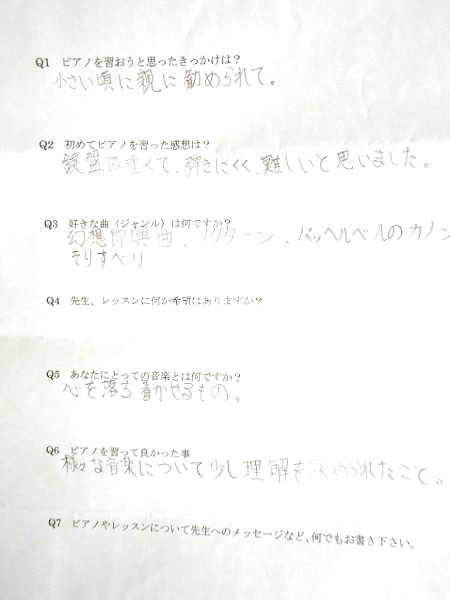 Q1 ピアノを習おうと思ったきっかけは？
小さい頃に親に勧められて。
Q2 初めてピアノを習った感想は？
鍵盤は重くて、弾きにくく、難しいと思いました。
Q3 好きな曲（ジャンル）は何ですか？
幻想即興曲、ノクターン、パッヘルベルのカノン
そりすべり
Q4 先生、レッスンに何か希望はありますか？
Q5 あなたにとっての音楽とは何ですか？
心を落ち着かせるもの。
Q6 ピアノを習って良かった事
様々な音楽について少し理解を深められたこと。
Q7 ピアノやレッスンについて先生へのメッセージなど、何でもお書き下さい。